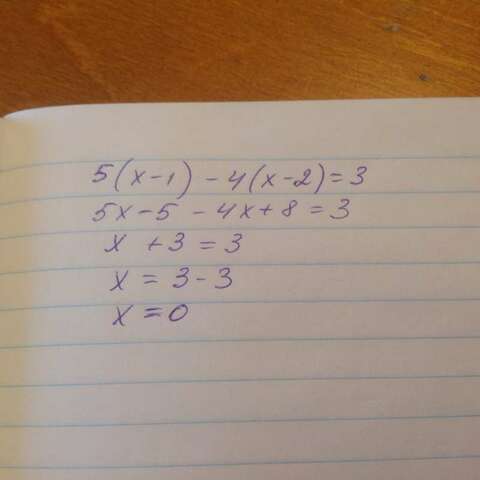 5(x-1) - 4(x-2) = 3
5x - 5 - 4x + 8 = 3
x + 3 = 3
x = 3 - 3
x = 0